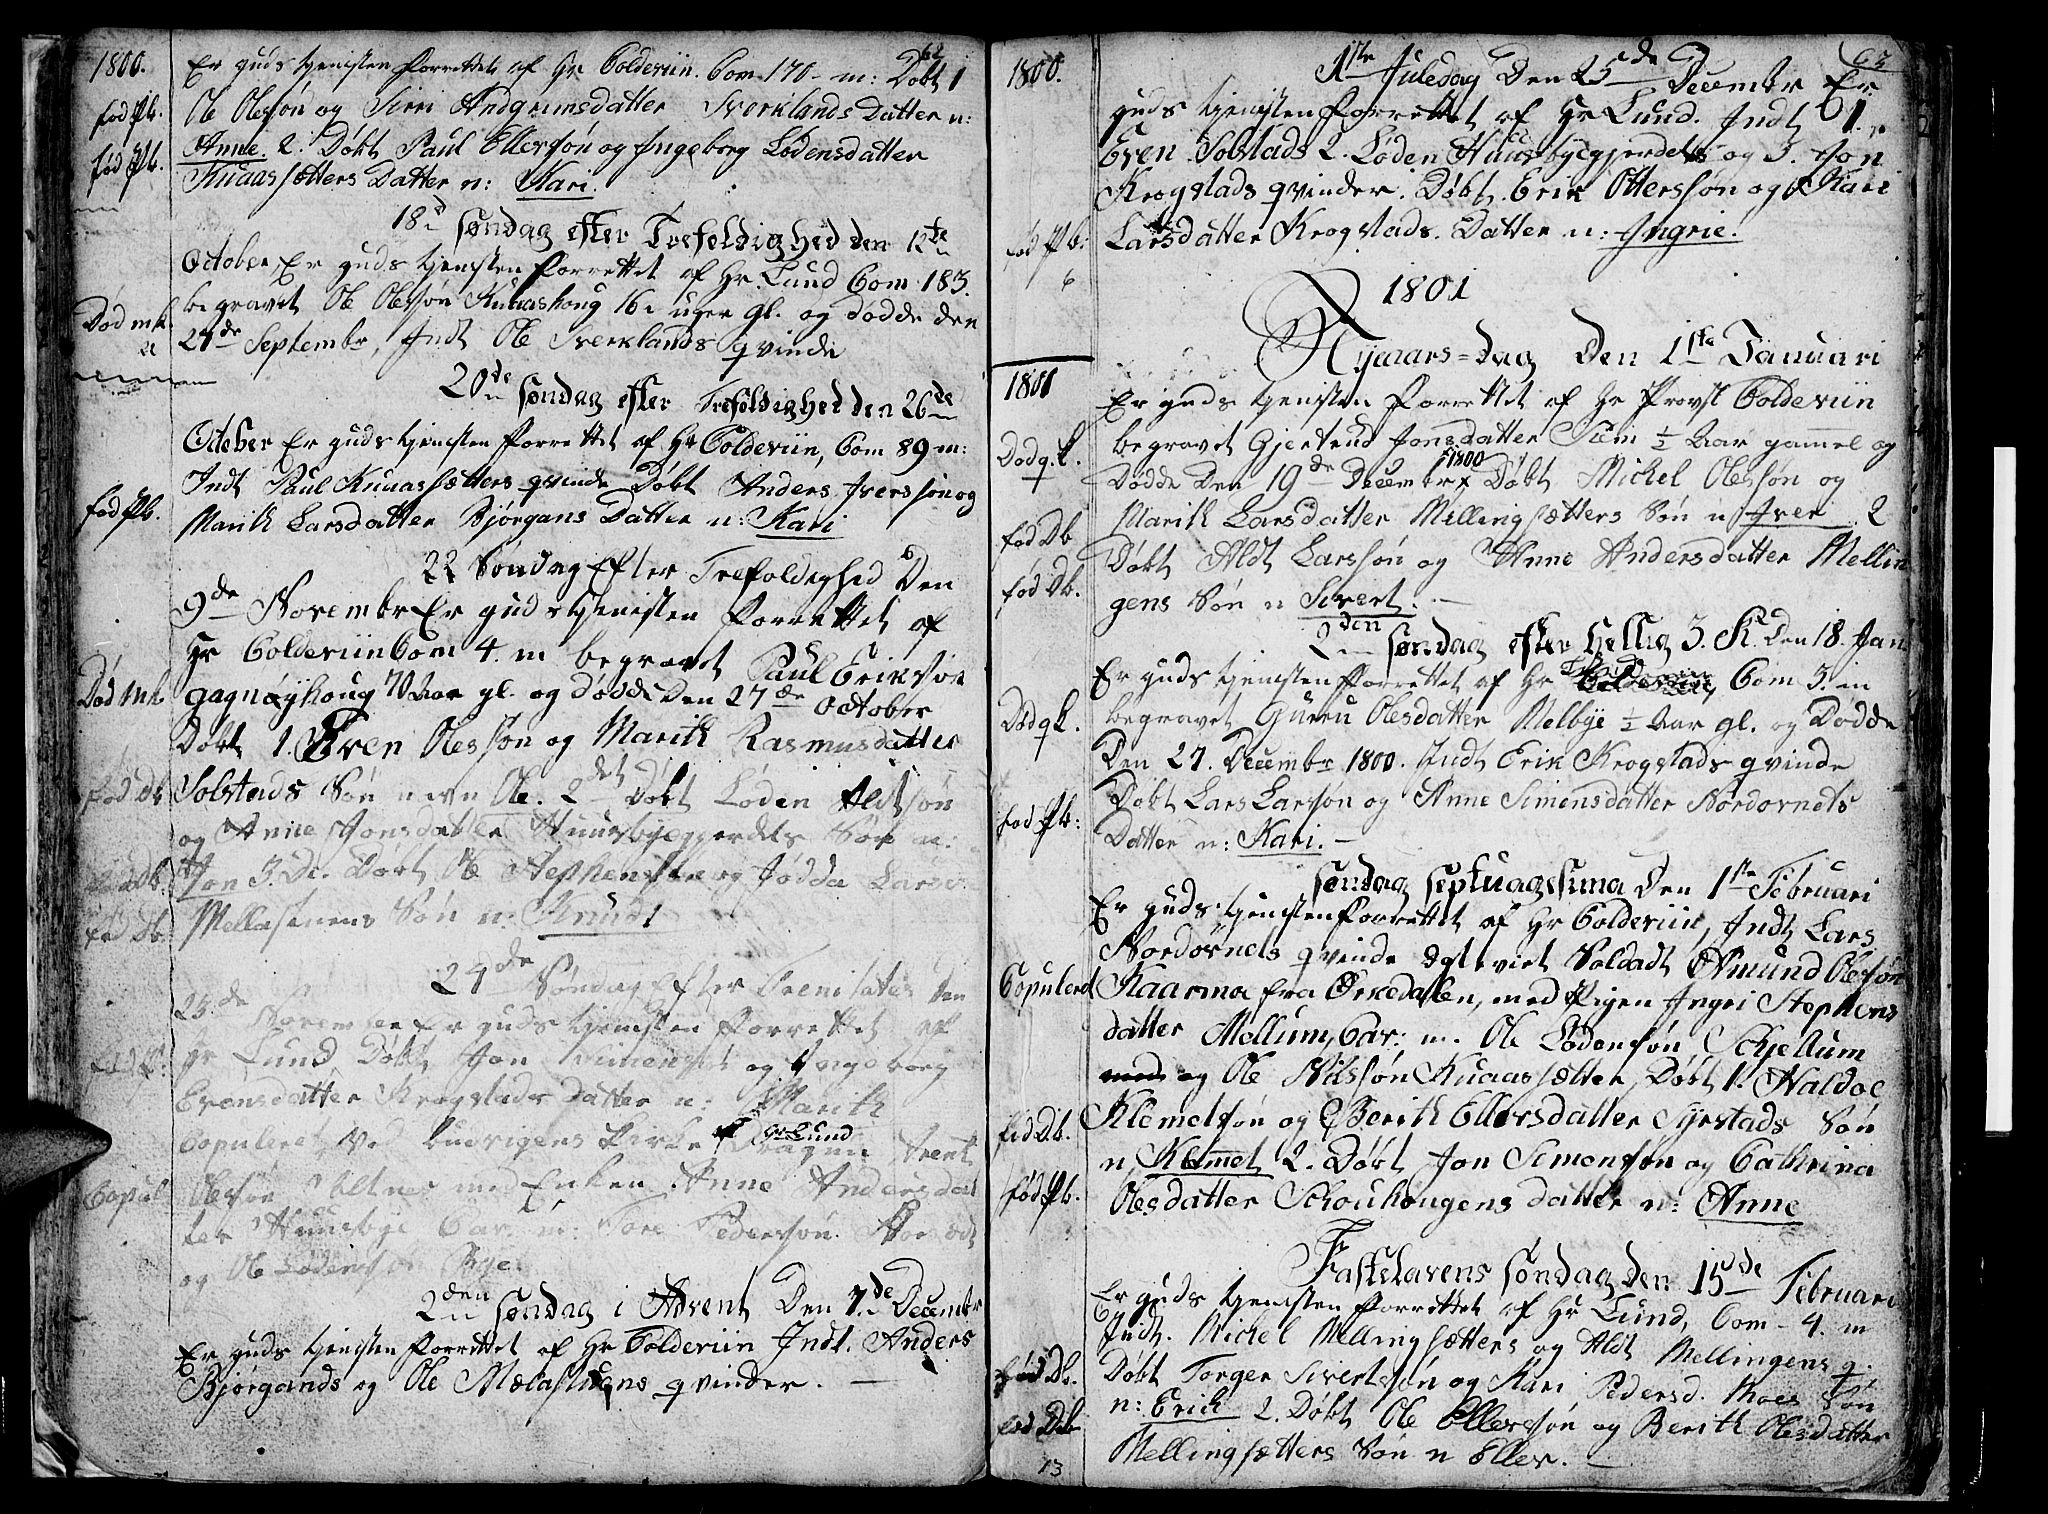 62
1800.
Er guds tjenisten Forrettet af Hr Colderiin. Com 170 - m: Døbt 1
fød Pb.
Ole Olessøn og Siri Andgrimsdatter Sverklands Datter n:
fød Pb.
Anne. 2. Døbt Paul Ellevsøn og Ingeborg Lodensdatter
Kuaassætters Datter n: Kari.
18d søndag efter Trefoldighed den 12te
October, Er guds tjenisten forrettet af Hr. Lund Com 183.
begravet Ole Olessøn Kuaashoug 16 uger gl. og dødde den
Død mk.
24de Septembr, Indt Ole Sverklands qvinde
20de søndag efter Trefoldighed den 26de
October Er guds tjenisten Forrettet af Hr Colderiin, Com 89 m:
Indt Paul Kuaassætters qvinde Døbt Anders Iverssøn og
fød Pb.
Marith Larsdatter Bjørgans Datter n: Kari
22 Søndag Efter Trefoldighed Den
9de Novembr Er guds tjenisten Forrettet af
Hr Colderiin Com 4. m begravet Paul Erikssøn
Død mk
gagnøyhoug 70 Aar gl. og dødde Den 27de October
Døbt 1. Even Olessøn og Marith Rasmusdatter
fød Db
Solstads Søn navn Ole. 2det Døbt Loden Aldtsøn
og Anne Jonsdatter Huusbyegjerdets Søn n:
Jon 3. De. Døbt Ole Stephensøn og Jødda Larsd
fød Db
Mellasenens Søn n: Knudt
24de Søndag Efter Trenitates Den
23de November Er guds tjenisten Forrettet af
Hr Lund Døbt Jon Simensøn og Ingeborg
fød P:
Evensdatter Krogstads datter n: Marith
Copuleret ved Hr Lund Dragun Arent
Copul
Olesøn med Enken Anne Andersdat
ter Huusbye Cav. m: Tore Pedersøn
og Ole Lodensøn Bye
2den søndag i Advent Den 7de Decembr
Er guds tjenisten Forrettet af Hr Colderiin Indt. Anders
Bjørgands og Ole Melastuens qvinder. —
63
1800.
1ste Juledag Den 25de Decembr Er
guds tjenisten Forrettet af Hr Lund. Indt 1.
Even Solstads 2. Loden Huusbyegjerdets og 3. Jon
Krogstads qvinder. Døbt. Erik Otterssøn og Kari
fød Pb:
Larsdatter Krogstads. Datter n: Ingrie.
6
1801
1801
Nyaars=dag Den 1ste Januari
Er guds tjenisten Forrettet af Hr Provst Colderiin
Dod q. k.
begravet Gjertrud Jonsdatter Siem 1/2 Aar gammel og
Dødde Den 19de Decembr 1800 Døbt Michel Olessøn og
fød Db
Marith Larsdatter Mellingsætters Søn n Iver 2
fød Db.
Døbt Aldt Larssøn og Anne Andersdatter Mellin
gens Søn n Sivert. —
2den søndag efter Hellig 3. K. Den 18. Jan
Er guds tjenisten Forrettet af Hr Lund Com 3. m
Dod q k.
begravet Guru Olesdatter Melbye 1/2 Aar gl. og Dødde
Den 27. Decembr 1800. Indt Erik Krogstads qvinde
fød Pb:
Døbt Lars Larssøn og Anne Simensdatter Nordornets
Datter n: Kari. —
søndag septuagesima Den 1ste Februari
Er guds tjenisten Forrettet af Hr Colderiin, Indt Lars
Nordørnets qvinde Egteviet Soldadt Amund Olesøn
Copulerd
Kaarmoe fra Ørkedallen, med Pigen Ingri Stephens
datter Mellum, Cav: m. Ole Lodensøn Schjellum
med og Ole Nilssøn Kuaassætter, Døbt 1. Haldoe
fød Db.
Klemetsøn og Berith Ellersdatter Syrstads Søn
n. Klemet 2. Døbt Jon Simensøn og Cathrina
fød Pb.
Olesdatter Schouhougens datter n: Anne
Fastelavens søndag den 15de Februari
Er guds tjenisten Forrettet af Hr Lund, Com - 4. m
Indt. Michel Mellingsætters og Aldt Mellingens q.
fød Db.
Døbt Torger Sivertssøn og Kari Pedersd. Moes Søn
n: Erich 2. Døbt Ole Ellevsøn og Berith Olesdatter
fød Db
Mellingsætters Søn n Ellev. —
13